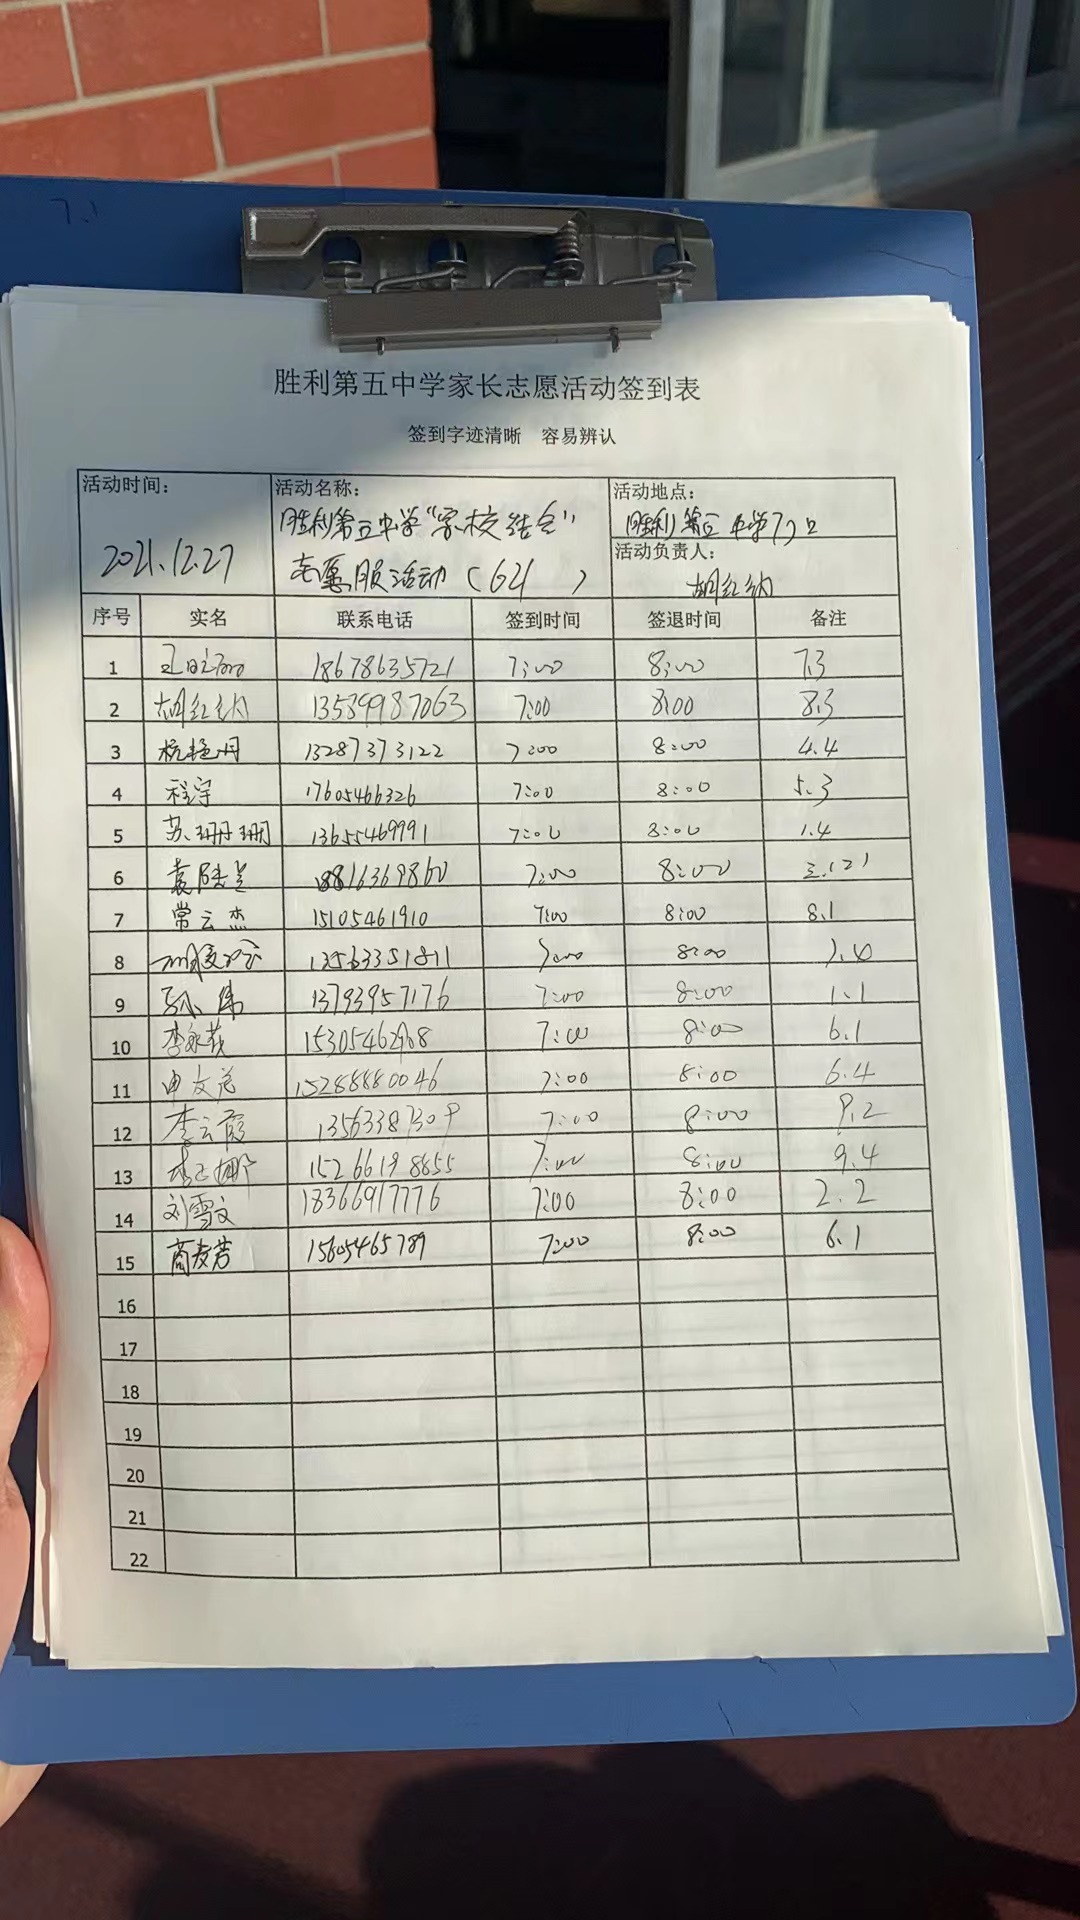 7.1
胜利第五中学家长志愿活动签到表
签到字迹清晰 容易辨认
活动时间: 2021.12.27
活动名称: 胜利第五中学"家校结合"
志愿服活动(621 )
活动地点:
胜利第五中学门口
活动负责人:
胡红纳
序号 实名 联系电话 签到时间 签退时间 备注
1 18678635721 7:00 8:00 7.3
2 胡红纳 13589987063 7:00 8:00 8.3
3 13287373122 7:00 8:00 4.4
4 程宇 17605466326 7:00 8:00 5.3
5 苏珊珊 13655469991 7:00 8:00 1.4
6 18816369860 7:00 8:00
7 常云杰 15105461910 7:00 8:00 8.1
8 13563351811 7:00 8:00 7.4
9 孙伟 13793957176 7:00 8:00 1.1
10 7:00 8:00 6.1
11 15288880046 7:00 8:00 6.4
12 李云霞 13563387309 7:00 8:00 9.2
13 15266198655 7:00 8:00 9.4
14 刘雪文 18366917776 7:00 8:00 2.2
15 商友芳 15605465789 7:00 8:00 6.1
16
17
18
19
20
21
22